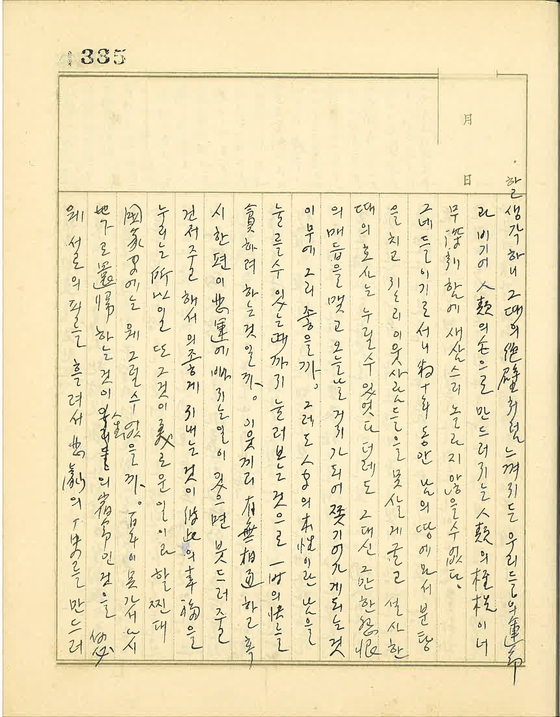 1335
月
日
할 생각하니 그때의 絶壁처럼 느껴지든 우리들의 運命
과 비기어 人類의 손으로 만드러지는 人類의 桎梏이
무 深刻함에 새삼스리 놀라지 않을수 없다.
그네들이기로서니 동안 남의 땅에 와서 분탕
을 치고 죄 이웃사람들을 못살게 굴고 설사 한
때의 호사는 누릴수 있었다 더레도 그대신 그만한 怨恨
의 매듭을 맺고 오늘날 거지가 되어 쫓기어 가게 되는 것
이 무에 그리 좋을까. 그래도 人間의 本性이란 남을
눌를수 있는 때까지 눌러보는 것으로 一時의 快를
貪하려 하는것일까. 이웃끼리 有無相通하고 혹
시 한편이 悲運에 빠지는 일이 있으면 붓드러주고
건저주고 해서 의좋게 지내는것이 彼此의 幸福을
누리는 所以일 또 그것이 美로운 일이라 할찐대
國家間에는 왜 그럴수 없을까. 百年이 못가서 다시
地下로 還歸하는것이 人間의 宿命인것을
왜 서로의 피를 흘려서 悲劇의 歷史를 만드러